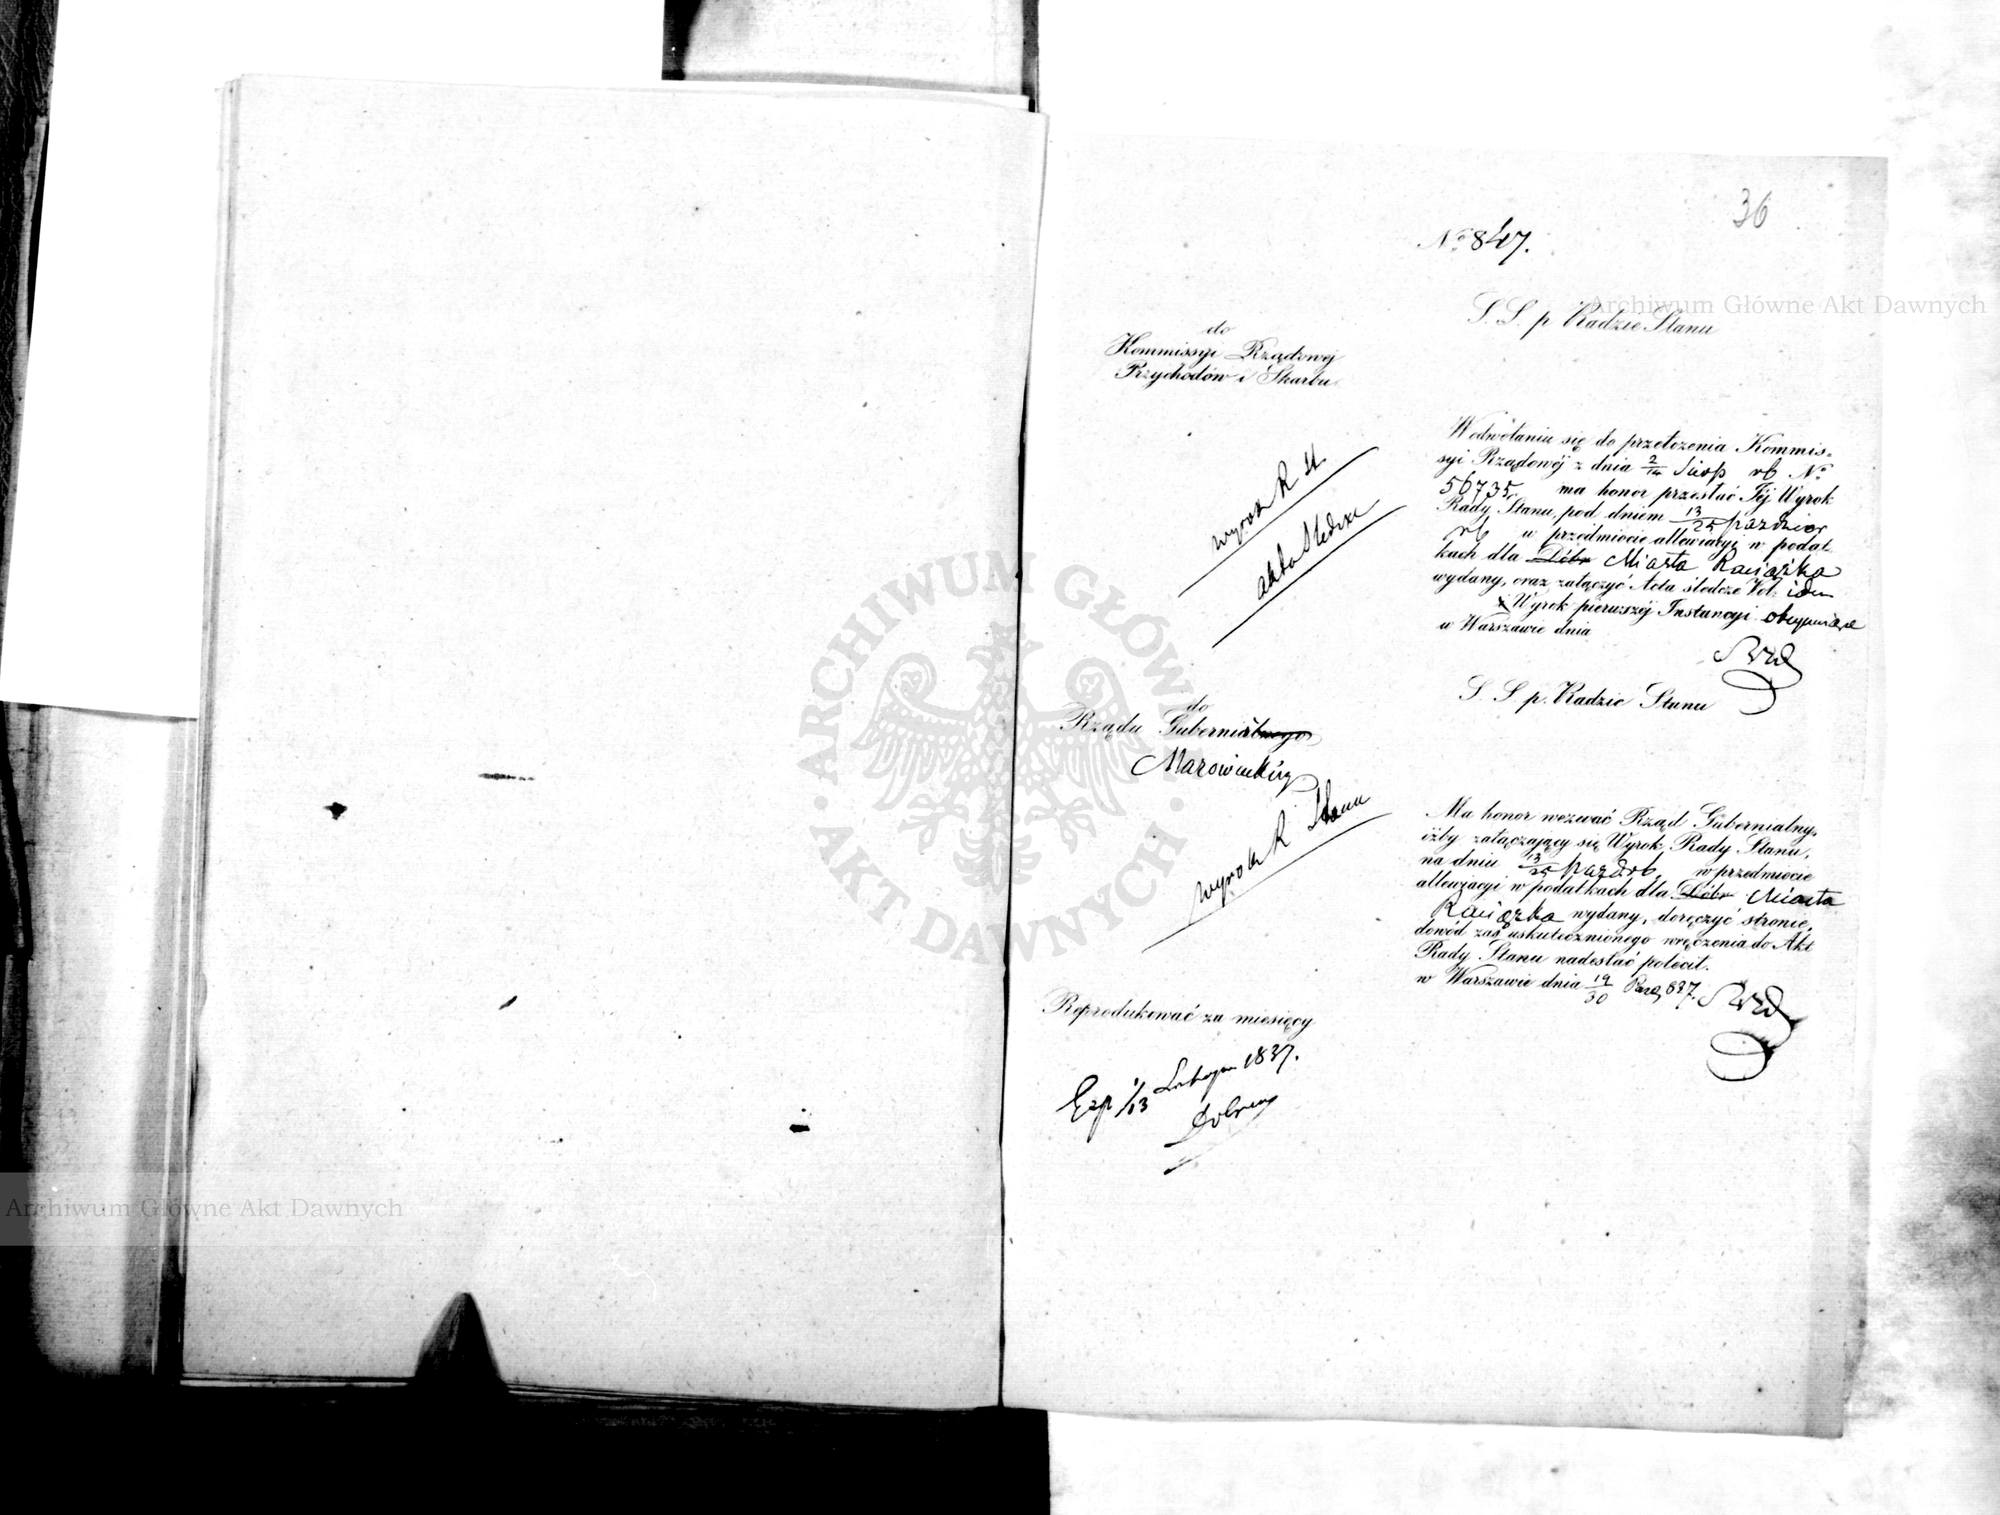 36
No 847.
Archiwum Główne Akt Dawnych
S. S. p Radzie Stanu
do
Kommissyi Rządowej
Przychodów i Skarbu
W odwołaniu się do przełożenia Kommis=
syi Rządowéj z dnia 2/14 Sierp rb No
56735. ma honor przesłać Jéj Wyrok
Rady Stanu, pod dniem 13/25 Paździer
rb w przedmiocie allewiacyi w podat
kach dla Dóbr Miasta Raciążka
wydany, oraz załączyć Acta śledcze Vol.
i Wyrok pierwszéj Instancyi obejmujące
w Warszawie dnia
wyrok R St.
akta śledcze
S. S p. Radzie Stanu
do
Rządu Gubernialnego
Mazowieckiego
wyrok R Stanu
Ma honor wezwać Rząd Gubernialny,
iżby załączający się Wyrok, Rady Stanu,
na dniu 13/25 Paźdrb, w przedmiocie
allewiacyi w podatkach dla Dóbr Miasta
Raciążka wydany, doręczyć stronie,
dowód zaś uskutecznionego wręczenia do Akt
Rady Stanu nadesłać polecił.
w Warszawie dnia 19/30 837.
Reprodukować za miesięcy
Exp 1/13 Listopa 1837.
ARCHIWUM GŁÓWNE
AKT DAWNYCH
Archiwum Główne Akt Dawnych